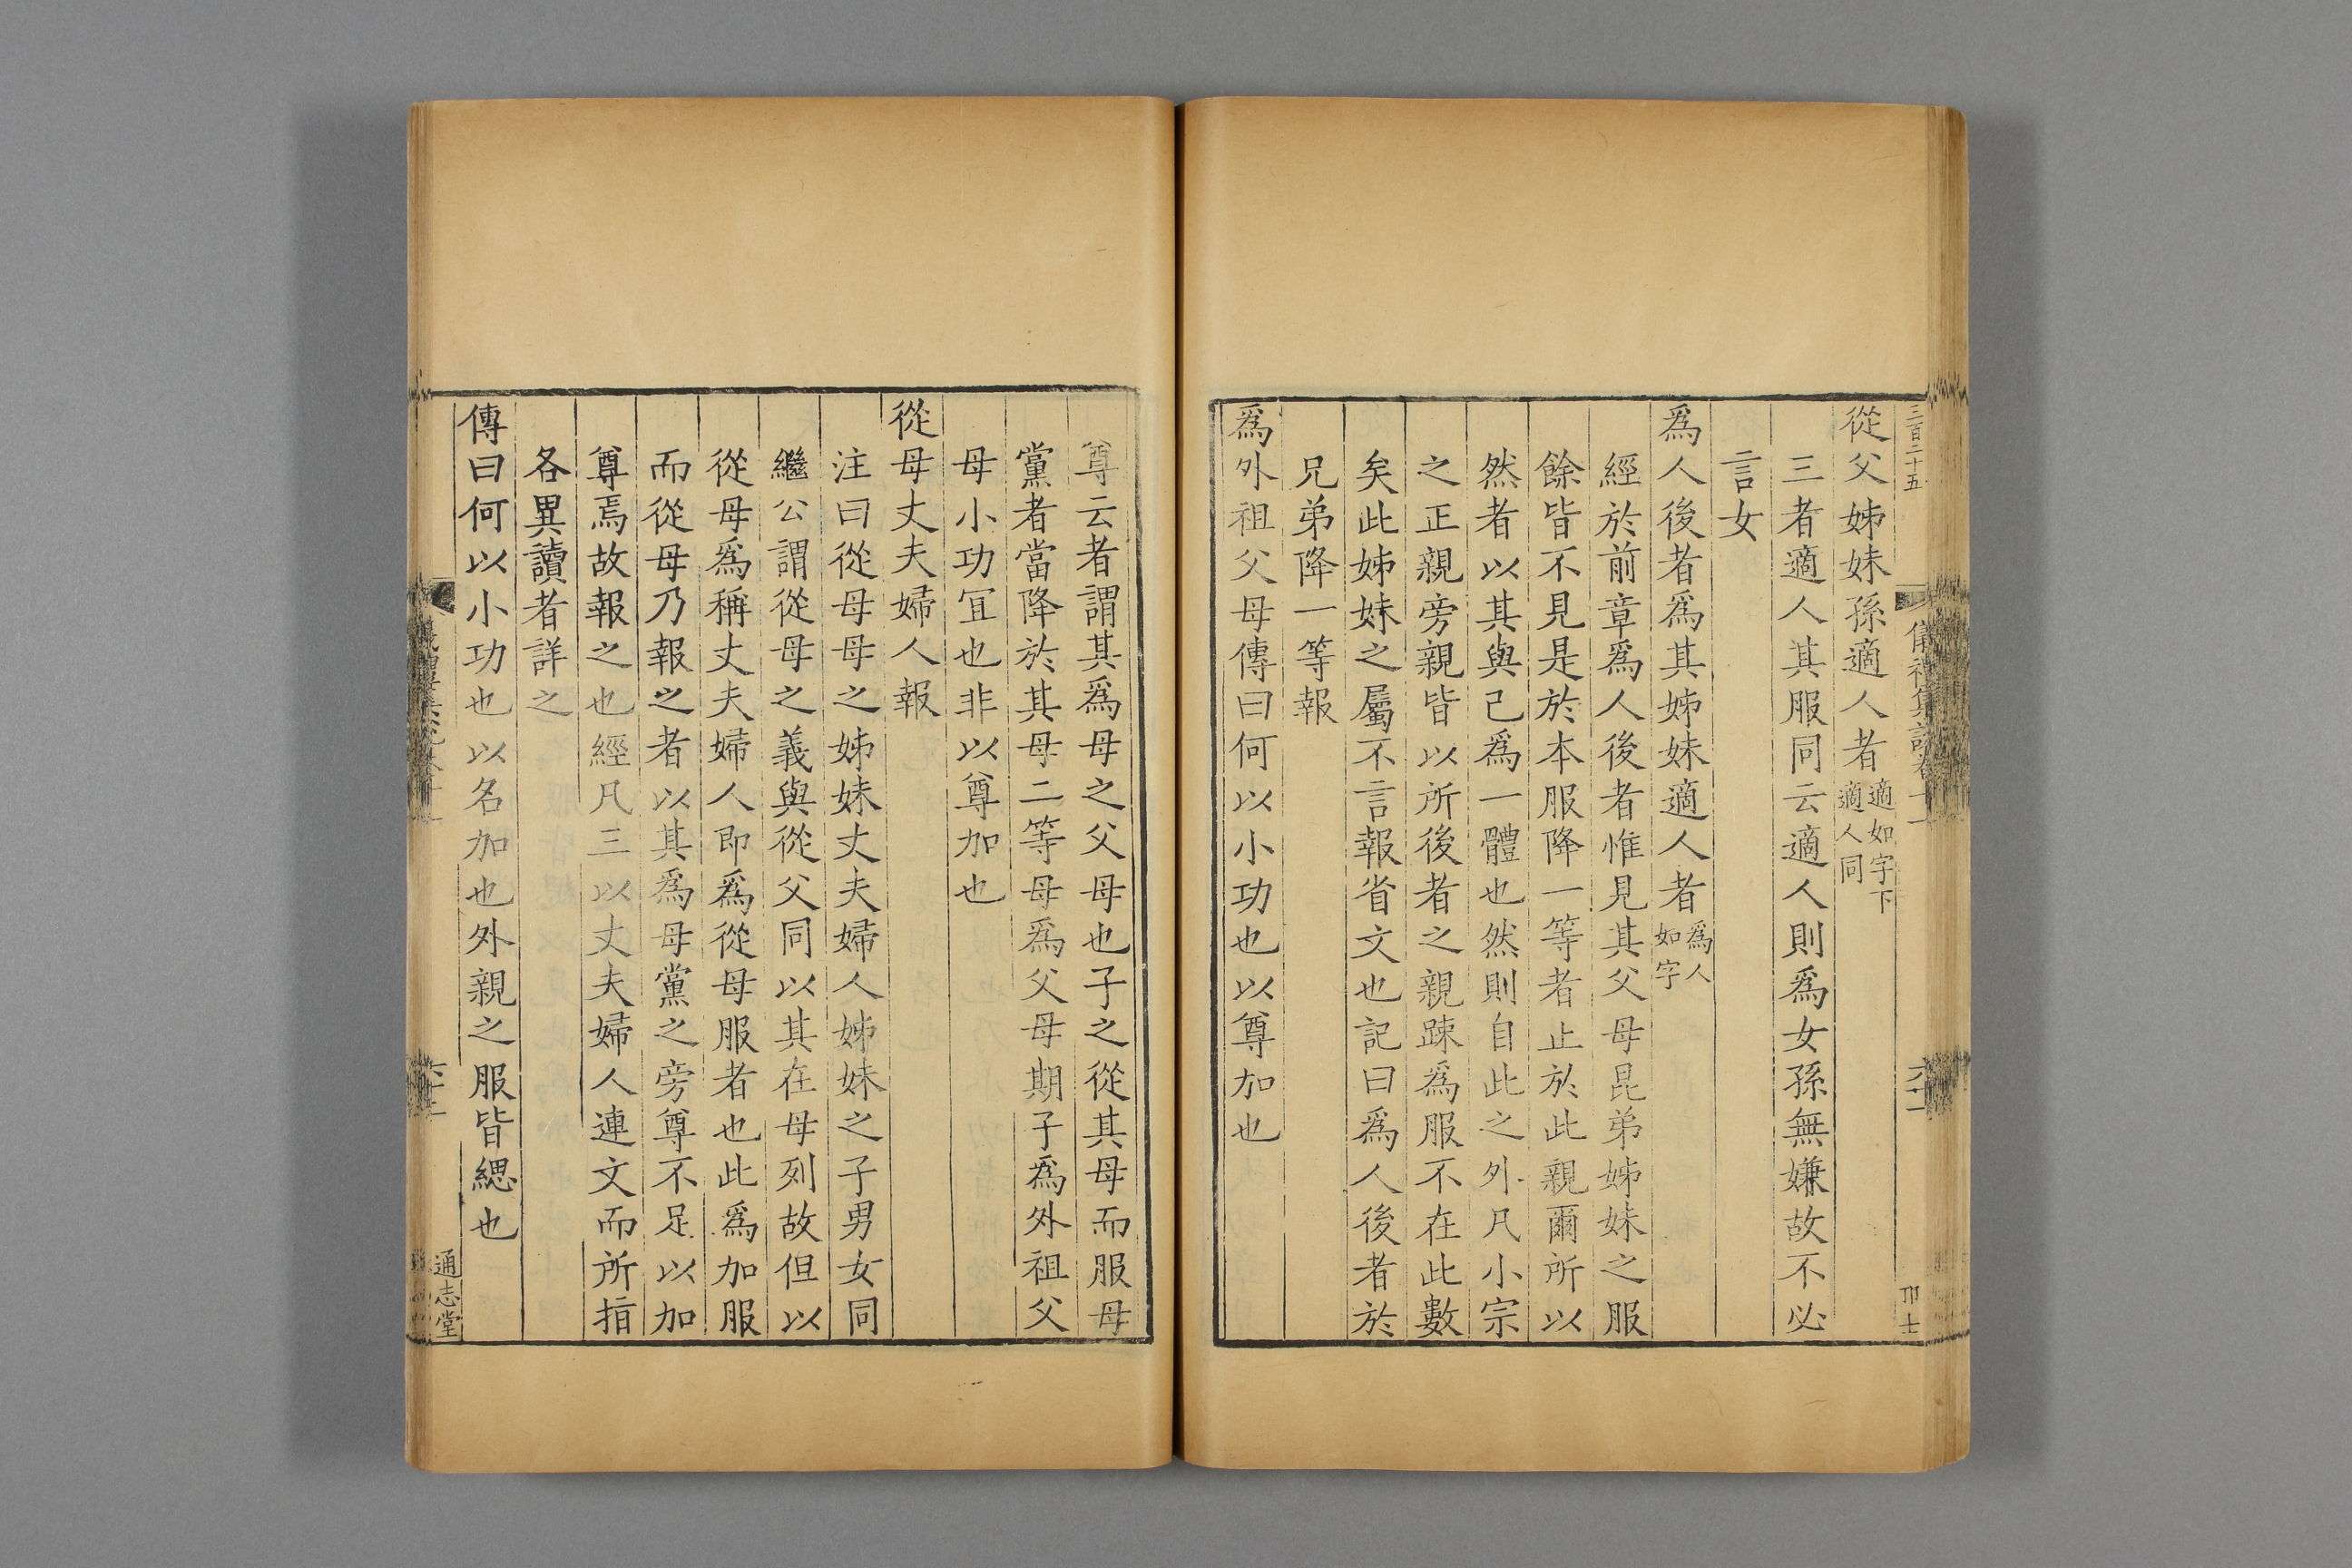 三百二十五
從父姊妹孫適人者適如字下適人同
三者適人其服同云適人則爲女孫無嫌故不必
言女
爲人後者爲其姊妹適人者爲人如字
經於前章爲人後者惟見其父母昆弟姊妹之服
餘皆不見是於本服降一等者止於此親爾所以
然者以其與己爲一體也然則自此之外凡小宗
之正親旁親皆以所後者之親踈爲服不在此數
矣此姊妹之屬不言報省文也記曰爲人後者於
兄弟降一等報
爲外祖父母傳曰何以小功也以尊加也
尊云者謂其爲母之父母也子之從其母而服母
黨者當降於其母二等母爲父母期子爲外祖父
母小功宜也非以尊加也
從母丈夫婦人報
注曰從母母之姊妹丈夫婦人姊妹之子男女同
繼公謂從母之義與從父同以其在母列故但以
從母爲稱丈夫婦人即爲從母服者也此爲加服
而從母乃報之者以其爲母黨之旁尊不足以加
尊焉故報之也經凡三以丈夫婦人連文而所指
各異讀者詳之
傳曰何以小功也以名加也外親之服皆緦也
通志堂